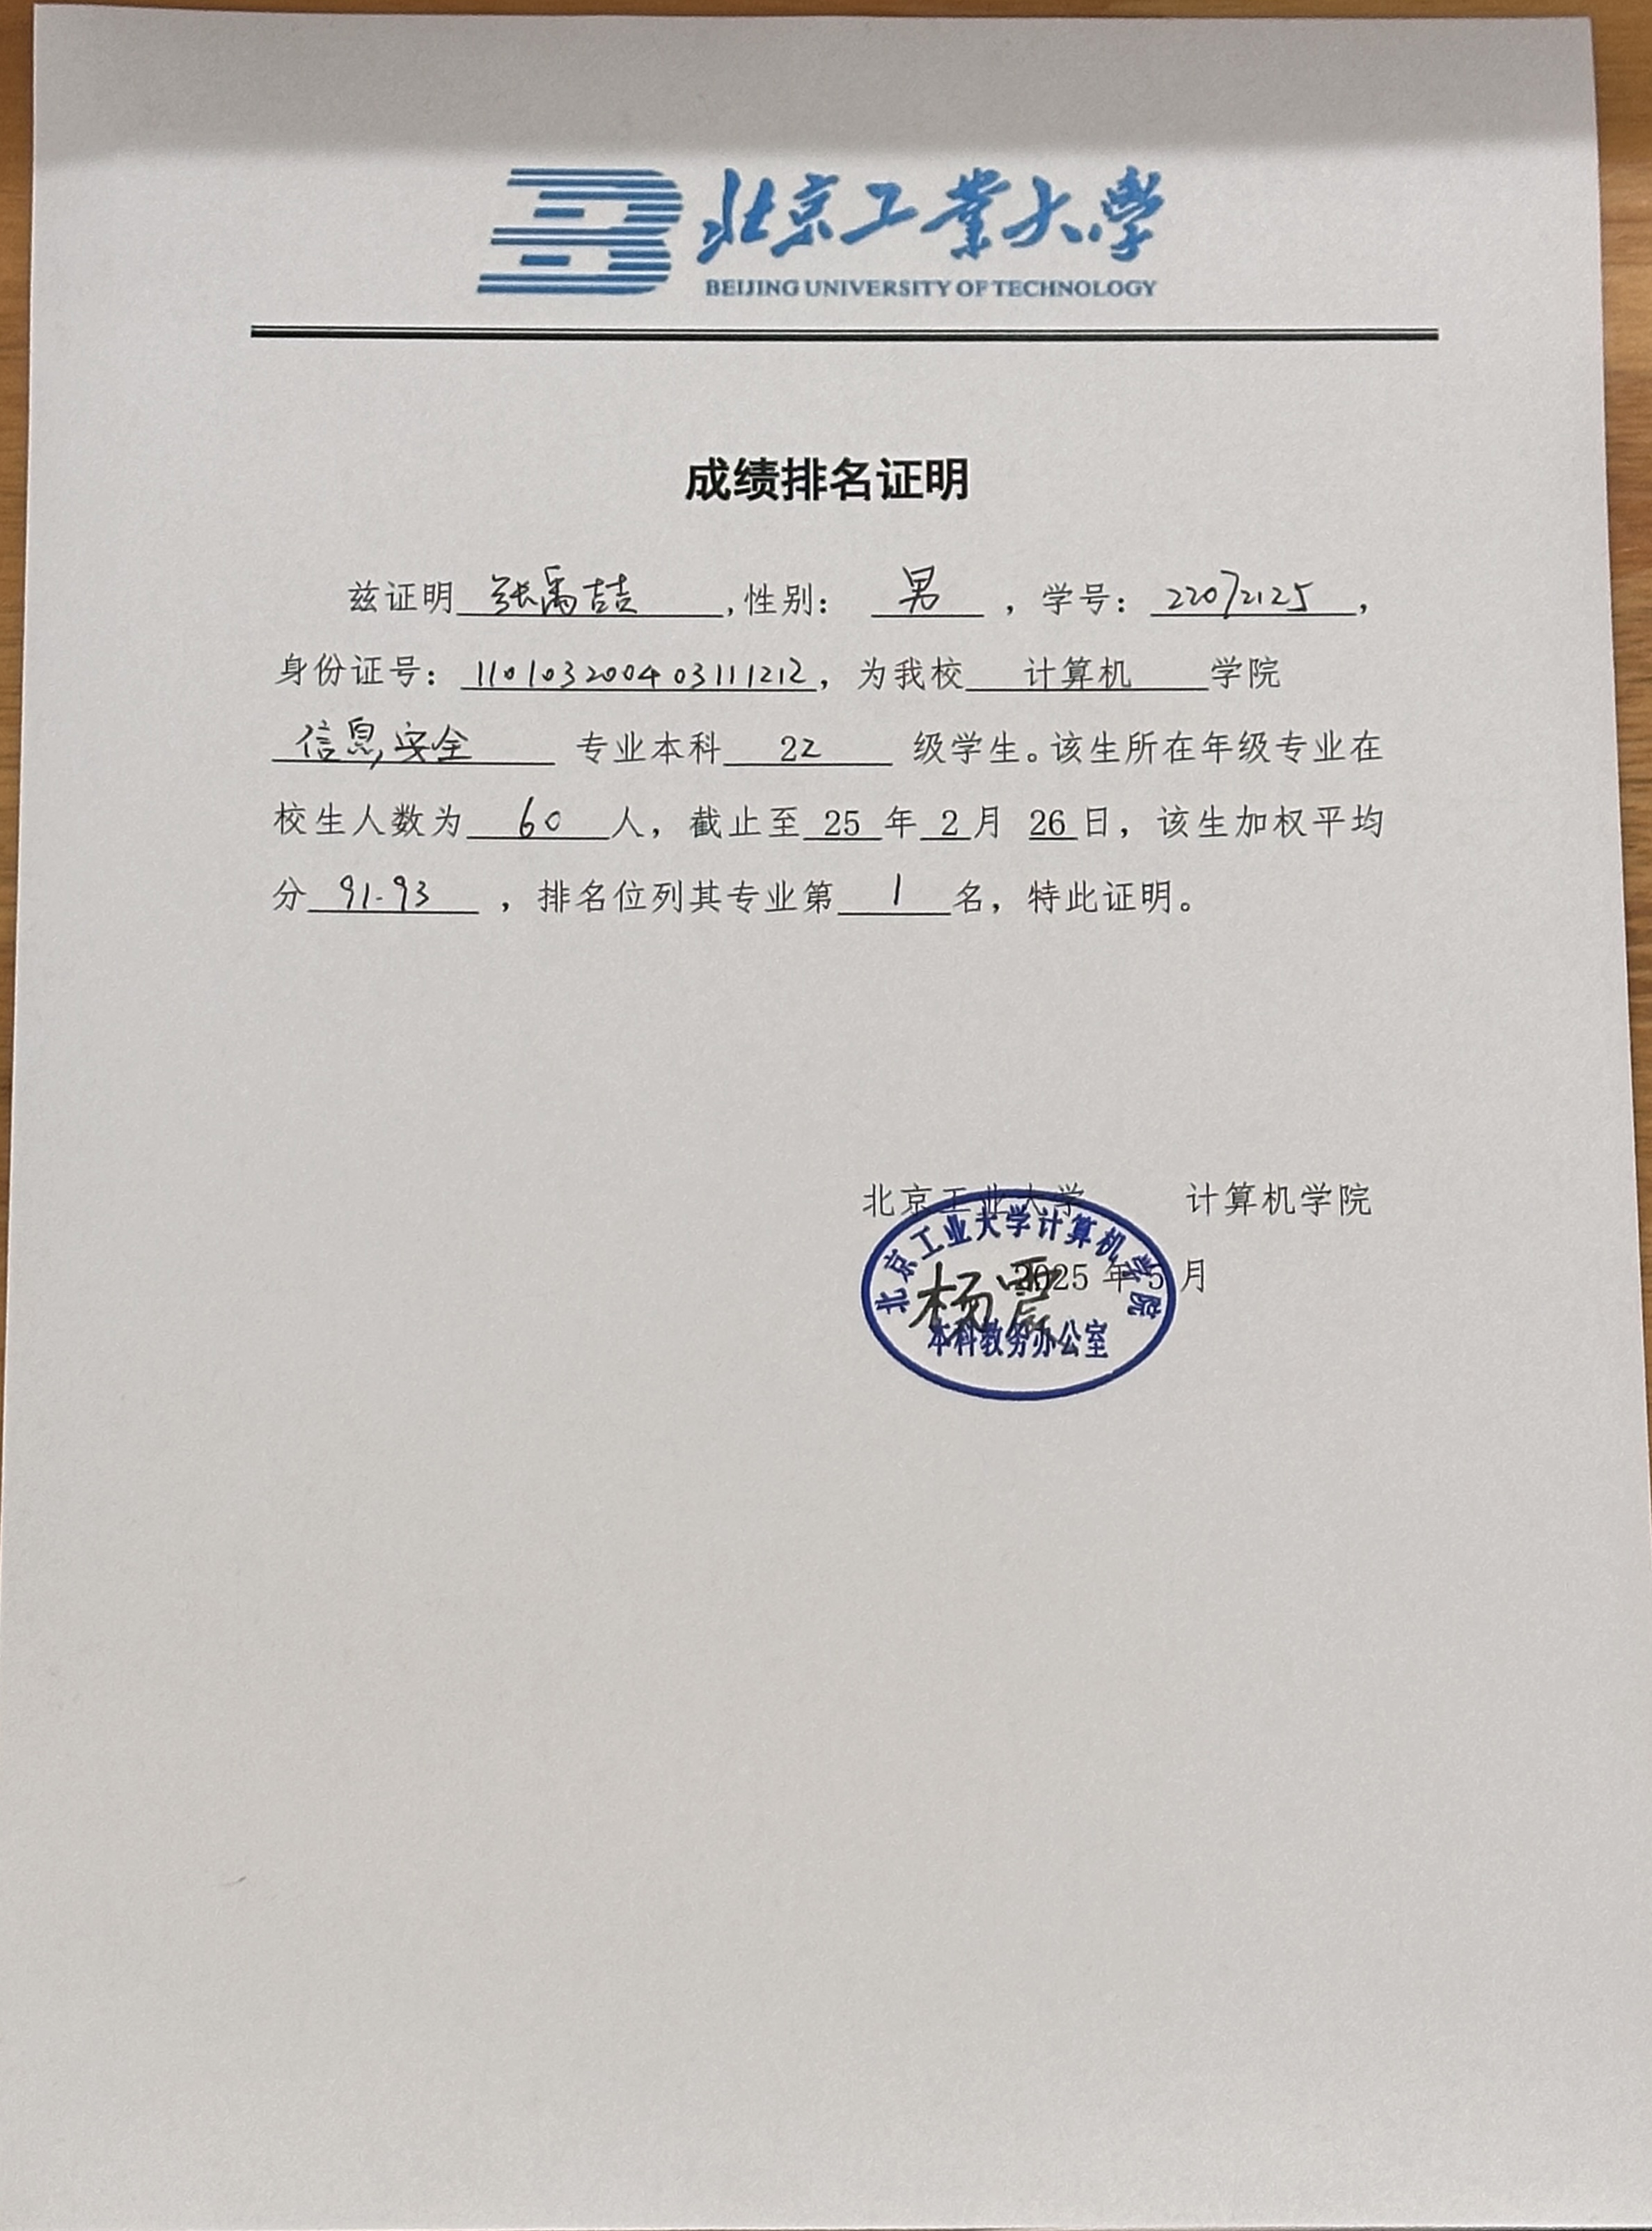 北京工業大學
BEIJING UNIVERSITY OF TECHNOLOGY
成绩排名证明
兹证明 张禹喆 ,性别: 男 ,学号: 22072125 ,
身份证号: 110103200403111212, 为我校 计算机 学院
信息安全 专业本科 22 级学生。该生所在年级专业在
校生人数为 60 人, 截止至 25 年 2 月 26 日, 该生加权平均
分 91.93 , 排名位列其专业第 1 名, 特此证明。
北京工业大学 计算机学院
2025 年 5 月
北京工业大学计算机学院
杨震
本科教务办公室